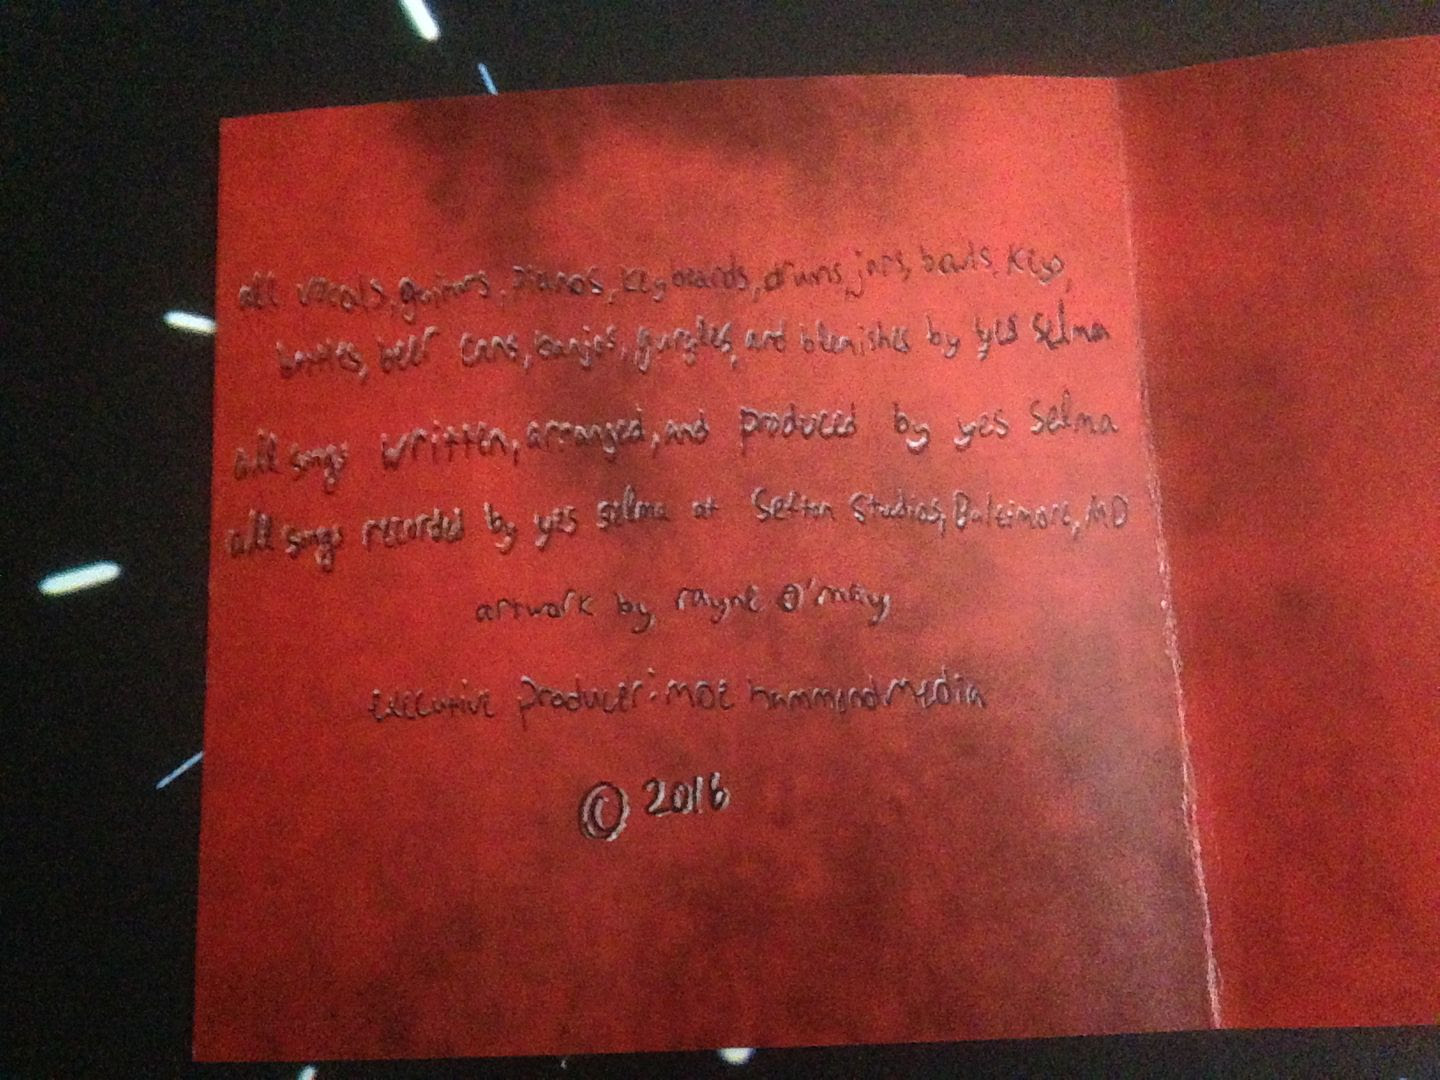 all vocals, guitars, pianos, keyboards, drums, jars, bowls, keys,
bottles, beer cans, banjos, gurgles, and blemishes by yes selma
all songs written, arranged, and produced by yes selma
all songs recorded by yes selma at Studios, Baltimore, MD
artwork by rayne o'may
executive producer: MOE hammond media
© 2016